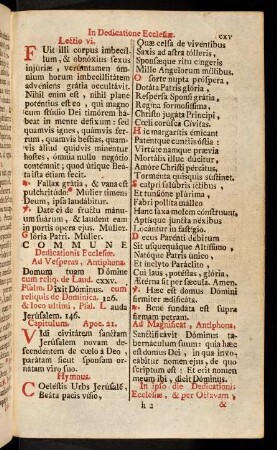 In Dedicatione Ecclesiæ. cxv
Lectio vi.
FUit illi corpus imbecil-
lum, & obnóxium sexus
injúriæ, verúmtamen óm-
nium horum imbecillitátem
advéniens grátia occultávit.
Nihil enim est, nihil planè
poténtius est eo, qui magno
cum stúdio Dei timórem
sibi bene munitum reddit: sed
quamvis ignes, quámvis fer-
rum, quámvis béstiæ, quam-
vis quidvis áliud immineat
hostes, ómnia nullo negótio
contémnit; quod útique Beá-
ta ista étiam fecit.
℟. Fallax grátia, & vana est
pulchritúdo. * Múlier timens
Deum, ipsa laudábitur.
℣. Date ei de fructu má-
nuum suárum, & laudent eam
in portis ópera ejus. Múlier.
Glória Patri. Múlier.
COMMUNE
Dedicationis Ecclesiæ.
Ad Vesperas, Antiphona.
Domum tuam Dómine
cum reliq. de Laud. cxxv.
Psalm. Dixit Dóminus. cum
reliquis de Dominica. 126.
& loco ultimi, Psal. Lauda
Jerúsalem. 146.
Capitulum. Apoc. 21.
VIdi civitátem sanctam
Jerúsalem novam de-
scendéntem de cœlo à Deo,
parátam sicut sponsam or-
nátam viro suo.
Hymnus.
COeléstis Urbs Jerúsalé,
Beáta pacis vísio,
Quæ celsa de vivéntibus
Saxis ad astra tólleris,
Sponsæque ritu cíngeris
Mille Angelórum míllibus.
O sorte nupta próspera,
Dotáta Patris glória,
Respérsa Sponsi grátia,
Regína formosíssima,
Christo jugáta Príncipi,
Cœli corúsca Cívitas.
Hic margarítis émicant
Paténtque cunctis óstia;
Virtúte namque prævia
Mortális illuc dúcitur,
Amóre Christi pércitus,
Torménta quisquis sústinet.
Scalpri salúbris íctibus,
Et tunsióne plúrima,
Fabri políta málleo
Hanc saxa molem cónstruunt,
Aptísque juncta néxibus
Locántur in fastígio.
Decus Parénti débitum
Sit usquequáque Altíssimo,
Natóque Patris único
Et ínclyto Paráclito,
Cui laus, potéstas, glória,
Ætérna sit per sæcula. Amen.
℣. Hæc est domus Dómini
fírmiter ædificáta.
℟. Bene fundáta est supra
firmam petram.
Ad Magnificat, Antiphona.
Sanctificávit Dóminus ta-
bernáculum suum: quia hæc
est domus Dei, in qua invo-
cábitur nomen ejus, de quo
scriptum est: Et erit nomen
meum ibi, dicit Dóminus.
In ipso die Dedicationis
Ecclesiæ, & per Octavam,
h 2 &